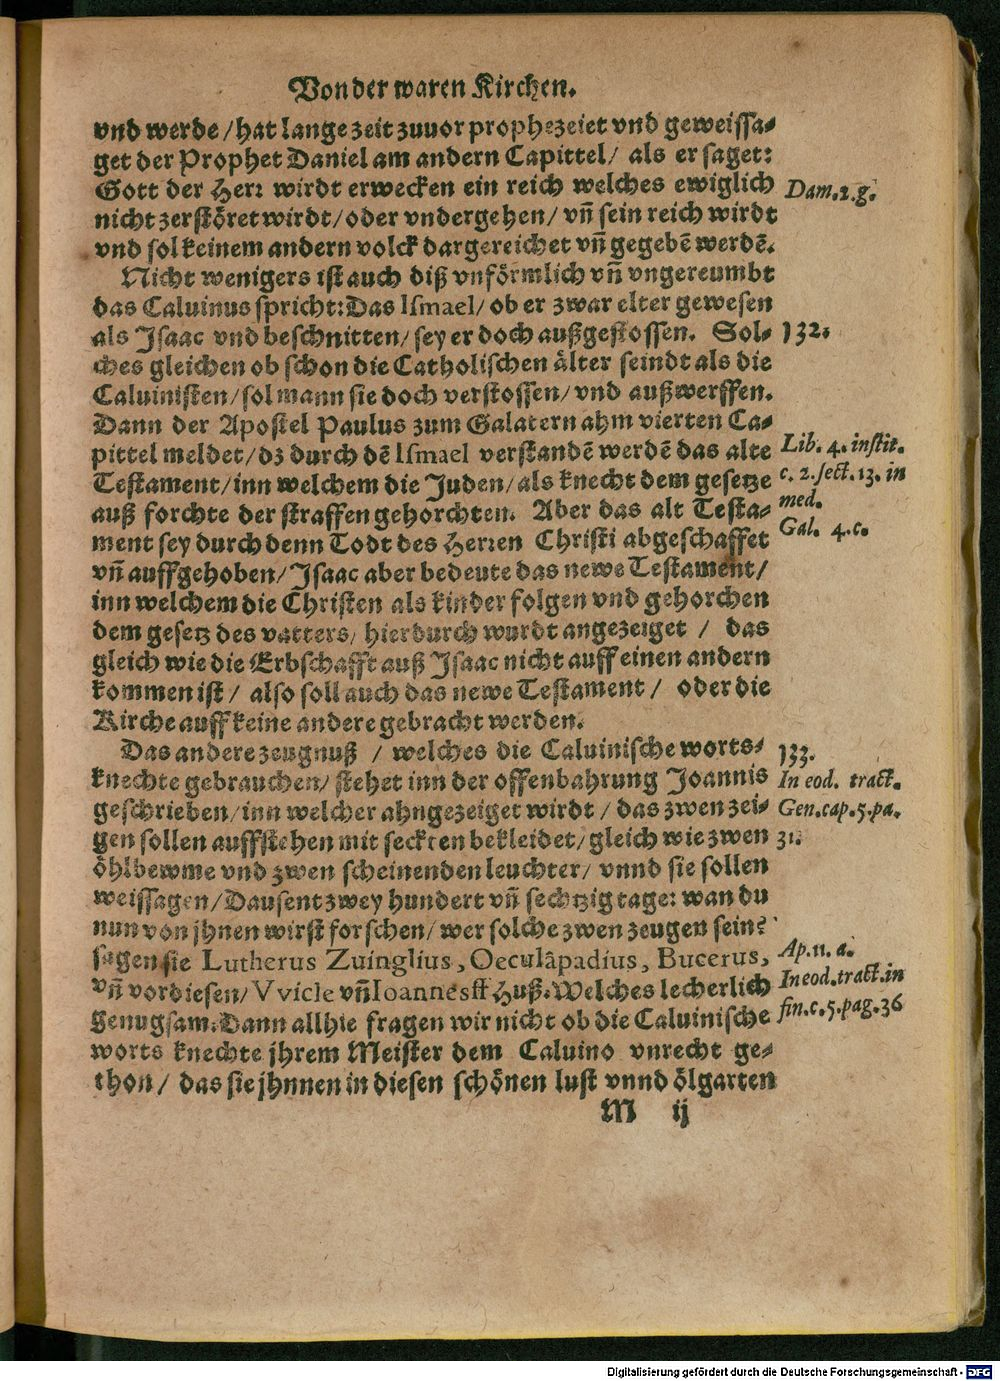 Von der waren Kirchen.
vnd werde / hat lange zeit zuuor prophezeiet vnd geweissa-
get der Prophet Daniel am andern Capittel / als er saget:
Gott der Herr wirdt erwecken ein reich welches ewiglich
Dam.2.g.
nicht zerstöret wirdt / oder vndergehen / vñ sein reich wirdt
vnd sol keinem andern volck dargereichet vñ gegebē werdē.
Nicht wenigers ist auch diß vnförmlich vñ vngereumbt
das Caluinus spricht: Das Ismael / ob er zwar elter gewesen
als Isaac vnd beschnitten / sey er doch außgestossen. Sol-
132.
ches gleichen ob schon die Catholischen älter seindt als die
Caluinisten / sol mann sie doch verstossen / vnd außwerffen.
Dann der Apostel Paulus zum Galatern ahm vierten Ca-
pittel meldet / dz durch dē Ismael verstandē werdē das alte
Lib. 4. instit.
Testament / inn welchem die Juden / als knecht dem gesetze
c. 2. sect. 13. in
auß forchte der straffen gehorchten. Aber das alt Testa-
med.
ment sey durch denn Todt des Herren Christi abgeschaffet
Gal. 4.c.
vñ auffgehoben / Isaac aber bedeute das newe Testament /
inn welchem die Christen als kinder folgen vnd gehorchen
dem gesetz des vatters / hierdurch wurdt angezeiget / das
gleich wie die Erbschafft auß Isaac nicht auff einen andern
kommen ist / also soll auch das newe Testament / oder die
Kirche auff keine andere gebracht werden.
Das andere zeugnuß / welches die Caluinische worts-
133.
knechte gebrauchen / stehet inn der offenbahrung Joannis
In eod. tract.
geschrieben / inn welcher ahngezeiget wirdt / das zwen zei-
Gen.cap.5.pa.
gen sollen auffstehen mit seckten bekleidet / gleich wie zwen
31.
öhlbewme vnd zwen scheinenden leuchter / vnnd sie sollen
weissagen / Dausent zwey hundert vñ sechtzig tage: wan du
nun von jhnen wirst forschen / wer solche zwen zeugen sein?
sagen sie Lutherus Zuinglius, Oeculāpadius, Bucerus,
Ap.11. a.
vñ vor diesen / VVicle vñ Ioannes st Huß. Welches lecherlich
In eod.tract.in
genugsam. Dann allhie fragen wir nicht ob die Caluinische
fin.c.5.pag.36
worts knechte jhrem Meister dem Caluino vnrecht ge-
thon / das sie jhnnen in diesen schönen lust vnnd ölgarten
M ij
Digitalisierung gefördert durch die Deutsche Forschungsgemeinschaft - DFG